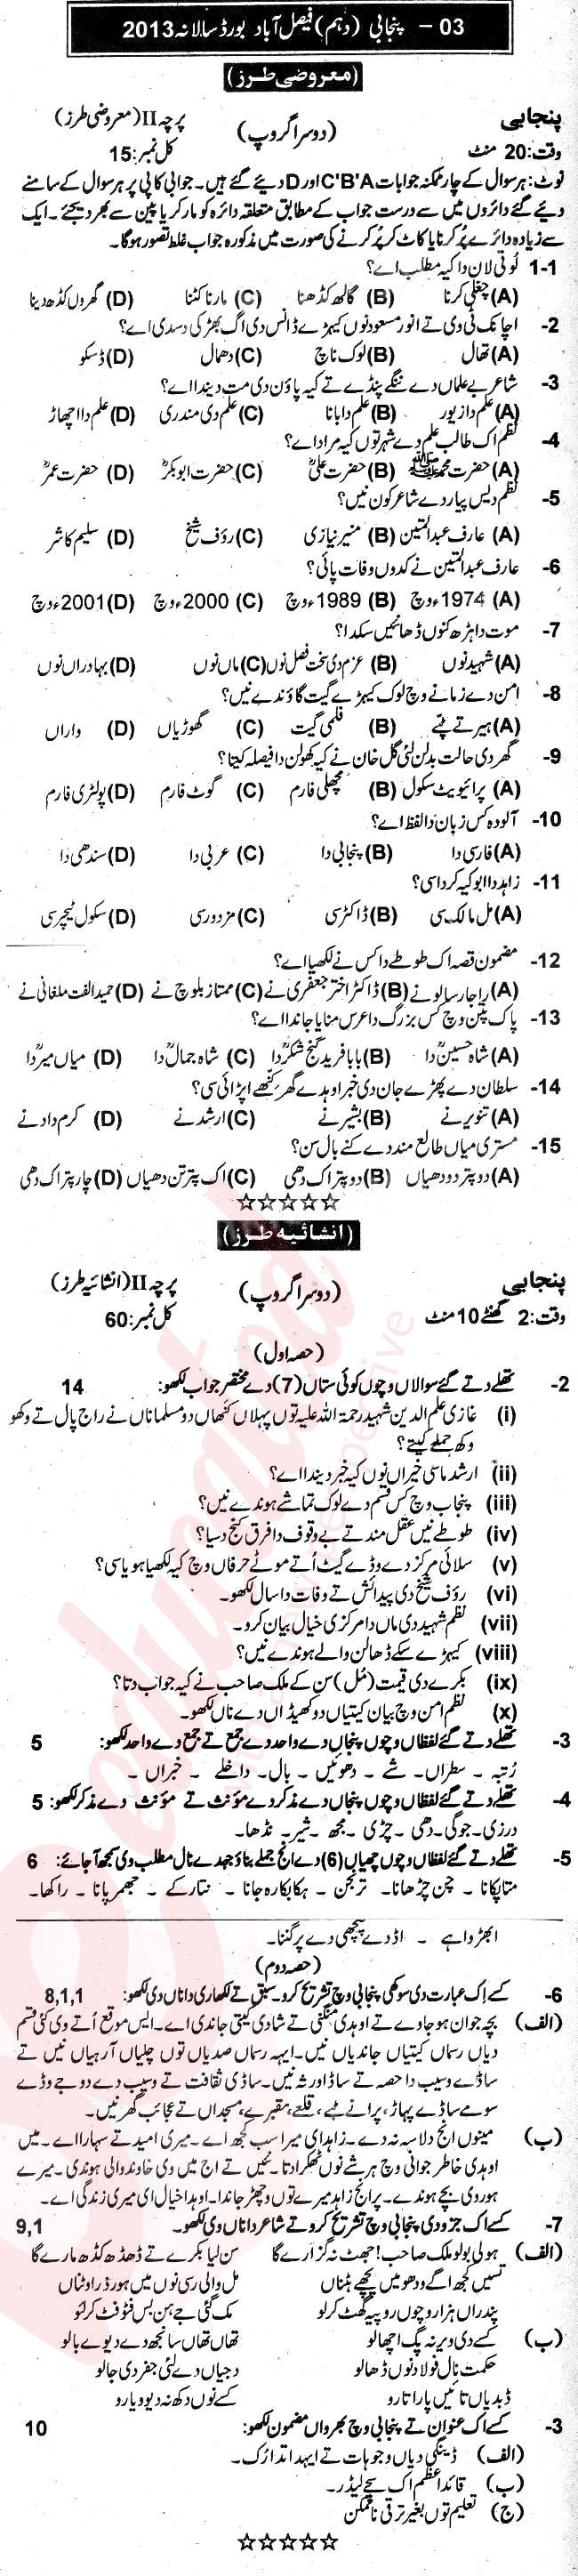 03 - پنجابی (دہم) فیصل آباد بورڈ سالانہ 2013
(معروضی طرز)
پنجابی (دوسرا گروپ) پرچہ II (معروضی طرز)
وقت: 20 منٹ کل نمبر: 15
نوٹ: ہر سوال کے چار ممکنہ جوابات C'B'A اور D دیئے گئے ہیں۔ جوابی کاپی پر ہر سوال کے سامنے
دیئے گئے دائروں میں سے درست جواب کے مطابق متعلقہ دائرہ کو مارکر یا پین سے بھر دیجئے۔ ایک
سے زیادہ دائرے پُر کرنے یا کاٹ کر پُر کرنے کی صورت میں مذکورہ جواب غلط تصور ہوگا۔
1-1 لُوتی لان دا کیہ مطلب اے؟
(A) چغلی کرنا (B) گالھ کڈھنا (C) مارنا کٹنا (D) گھروں کڈھ دینا
2- اچانک ٹی وی تے انور مسعود نوں کیہڑے ڈانس دی اگ بھڑکی دسدی اے؟
(A) تھال (B) لوک ناچ (C) دھمال (D) ڈسکو
3- شاعر بے علماں دے ننگے پنڈے تے کیہ پاؤن دی مت دیندا اے؟
(A) علم دا زیور (B) علم دا بانا (C) علم دی مندری (D) علم دا اچھاڑ
4- نظم اک طالب علم دے شہر توں کیہ مراد اے؟
(A) حضرت محمد ﷺ (B) حضرت علیؓ (C) حضرت ابوبکرؓ (D) حضرت عمرؓ
5- نظم دیس پیار دے شاعر کون نیں؟
(A) عارف عبدالمتین (B) منیر نیازی (C) رؤف شیخ (D) سلیم کاشر
6- عارف عبدالمتین نے کدوں وفات پائی؟
(A) 1974ء وچ (B) 1989ء وچ (C) 2000ء وچ (D) 2001ء وچ
7- موت دا ہڑھ کنوں ڈھا نئیں سکدا؟
(A) شہید نوں (B) عزم دی سخت فصل نوں (C) ماں نوں (D) بہادراں نوں
8- امن دے زمانے وچ لوک کیہڑے گیت گاؤندے نیں؟
(A) ہیر تے ٹپے (B) فلمی گیت (C) گھوڑیاں (D) واراں
9- گھر دی حالت بدلن لئی گل خان نے کیہ کھولن دا فیصلہ کیتا؟
(A) پرائیویٹ سکول (B) مچھلی فارم (C) گوٹ فارم (D) پولٹری فارم
10- آلودہ کس زبان دا لفظ اے؟
(A) فارسی دا (B) پنجابی دا (C) عربی دا (D) سندھی دا
11- زاہد دا ابو کیہ کردا سی؟
(A) مل مالک سی (B) ڈاکٹر سی (C) مزدور سی (D) سکول ٹیچر سی
12- مضمون قصہ اک طوطے دا کس نے لکھیا اے؟
(A) راجا رسالو نے (B) ڈاکٹر اختر جعفری نے (C) ممتاز بلوچ نے (D) حمید الفت ملغانی نے
13- پاک پتن وچ کس بزرگ دا عرس منایا جاندا اے؟
(A) شاہ حسینؒ دا (B) بابا فرید گنج شکرؒ دا (C) شاہ جمالؒ دا (D) میاں میرؒ دا
14- سلطان دے پھڑے جان دی خبر اوہدے گھر کنھے اپڑائی سی؟
(A) تنویر نے (B) بشیر نے (C) ارشد نے (D) کرم داد نے
15- مستری میاں طالع مند دے کنے بال سن؟
(A) دو پتر دو دھیاں (B) دو پتر اک دھی (C) اک پتر تن دھیاں (D) چار پتر اک دھی
☆☆☆☆☆
(انشائیہ طرز)
پنجابی (دوسرا گروپ) پرچہ II (انشائیہ طرز)
وقت: 2 گھنٹے 10 منٹ کل نمبر: 60
(حصہ اول)
2- تھلے دتے گئے سوالاں وچوں کوئی ستاں (7) دے مختصر جواب لکھو: 14
(i) غازی علم الدین شہید رحمۃ اللہ علیہ توں پہلاں کنھاں دو مسلماناں نے راج پال تے وکھو
وکھ حملے کیتے؟
(ii) ارشد ماسی خیراں نوں کیہ خبر دیندا اے؟
(iii) پنجاب وچ کس قسم دے لوک تماشے ہوندے نیں؟
(iv) طوطے نیں عقل مند تے بے وقوف دا فرق کنج دسیا؟
(v) سلائی مرکز دے وڈے گیٹ اُتے موٹے حرفاں وچ کیہ لکھیا ہویا سی؟
(vi) رؤف شیخ دی پیدائش تے وفات دا سال لکھو۔
(vii) نظم شہید دی ماں دا مرکزی خیال بیان کرو۔
(viii) کیہڑے سکے ڈھالن والے ہوندے نیں؟
(ix) بکرے دی قیمت (مُل) سن کے ملک صاحب نے کیہ جواب دتا؟
(x) نظم امن وچ بیان کیتیاں دو کھیڈاں دے ناں لکھو۔
3- تھلے دتے گئے لفظاں وچوں پنجاں دے واحد دے جمع تے جمع دے واحد لکھو: 5
رُتبہ ۔ سطراں۔ شے ۔ دھوئیں ۔ بال۔ داخلے ۔ خبراں ۔
4- تھلے دتے گئے لفظاں وچوں پنجاں دے مذکر دے مؤنث تے مؤنث دے مذکر لکھو: 5
درزی۔ جوگی۔ دھی۔ چڑی۔ مجھ۔ شیر۔ نڈھا۔
5- تھلے دتے گئے لفظاں وچوں چھیاں (6) دے انج جملے بناؤ جہدے نال مطلب وی سمجھ آ جائے: 6
متا پکانا ۔ چن چڑھانا۔ ترنجن ۔ ہکا بکا رہ جانا ۔ نتار کے ۔ جھمر پانا ۔ راکھا۔
ابھڑواہے ۔ اڈ دے پنچھی دے پر گننا۔
(حصہ دوم)
6- کسے اِک عبارت دی سوکھی پنجابی وچ تشریح کرو۔ سبق تے لکھاری دا ناں وی لکھو: 8,1,1
(الف) بچہ جوان ہو جاوے تے اوہدی منگنی تے شادی کیتی جاندی اے۔ ایس موقع اُتے وی کئی قسم
دیاں رسماں کیتیاں جاندیاں نیں۔ ایہہ رسماں صدیاں توں چلیاں آ رہیاں نیں تے
ساڈے وسیب دا حصہ تے ساڈا ورثہ نیں۔ ساڈی ثقافت تے وسیب دے دوجے وڈے
سومے ساڈے پہاڑ، پرانے ٹبے، قلعے، مقبرے، مسجداں تے عجائب گھر نیں۔
(ب) مینوں انج دلاسہ نہ دے۔ زاہد ای میرا سب کجھ اے۔ میری امید تے سہارا اے۔ میں
اوہدی خاطر جوانی وچ ہر شے نوں ٹھکرا دتا۔ نئیں تے اج میں وی خاوند والی ہوندی۔ میرے
ہور وی بچے ہوندے۔ پر انج زاہد میرے توں وچھڑ جاندا۔ اوہدا خیال ای میری زندگی اے۔
7- کسے اک جزو دی پنجابی وچ تشریح کرو تے شاعر دا ناں وی لکھو۔ 9,1
(الف) ہولی بولو ملک صاحب! جھٹ نہ گزارے گا سن لیا بکرے تے ڈھڈھ کڈھ مارے گا
تسیں کجھ اگے ودھو میں پچھے ہٹناں مل والی رسی نوں میں ہور ذرا وٹناں
پندراں ہزار وچوں روپیہ گھٹ کر لو مک گئی جے ہن بس فٹو فٹ کر لو
(ب) کسے دی ویر نہ پگ اچھالو تھاں تھاں سانجھ دے دیوے بالو
حکمت نال فولاد نوں ڈھالو دجیاں دے لئی جفر دی جالو
ڈبدیاں تائیں پار اتارو کسے نوں دکھ نہ دیو یارو
3- کسے اک عنوان تے پنجابی وچ بھرواں مضمون لکھو: 10
(الف) ڈینگی دیاں وجوہات تے ایہدا تدارک۔
(ب) قائداعظم اک سچے لیڈر۔
(ج) تعلیم توں بغیر ترقی ناممکن
☆☆☆☆☆